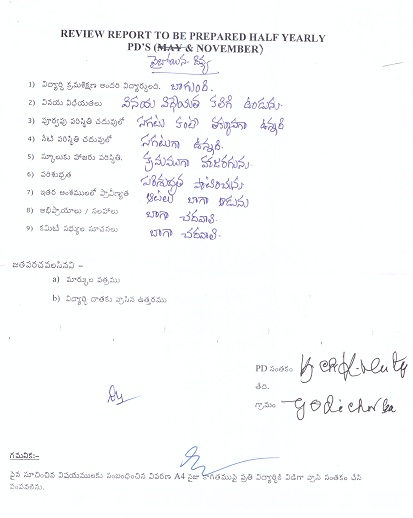 REVIEW REPORT TO BE PREPARED HALF YEARLY
PD'S (MAY & NOVEMBER)
1) విద్యార్థి క్రమశిక్షణ అందరి విద్యార్థులది. బాగుంది.
2) వినయ విధేయతలు వినయ విధేయత కలిగి ఉండును
3) పూర్వపు పరిస్థితి చదువులో సగటు కంటె తక్కువగా ఉన్నది
4) నేటి పరిస్థితి చదువులో సగటుగా ఉన్నది.
5) స్కూలుకు హాజరు పరిస్థితి. క్రమముగా హాజరగును.
6) పరిశుభ్రత పరిశుభ్రత పాటించును
7) ఇతర అంశములలో ప్రావీణ్యత ఆటలు బాగా ఆడును
8) అభిప్రాయాలు / సలహాలు బాగా చదవాలి.
9) కమిటీ సభ్యుల సూచనలు బాగా చదవాలి.
జతపరచవలసినవి :-
a) మార్కుల పత్రము
b) విద్యార్థి దాతకు వ్రాసిన ఉత్తరము
PD సంతకం
తేది.
గ్రామం
గమనిక:-
పైన సూచించిన విషయములకు సంబంధించిన వివరణ A4 సైజు కాగితముపై ప్రతి విద్యార్థికి విడిగా వ్రాసి సంతకం చేసి
పంపవలెను.